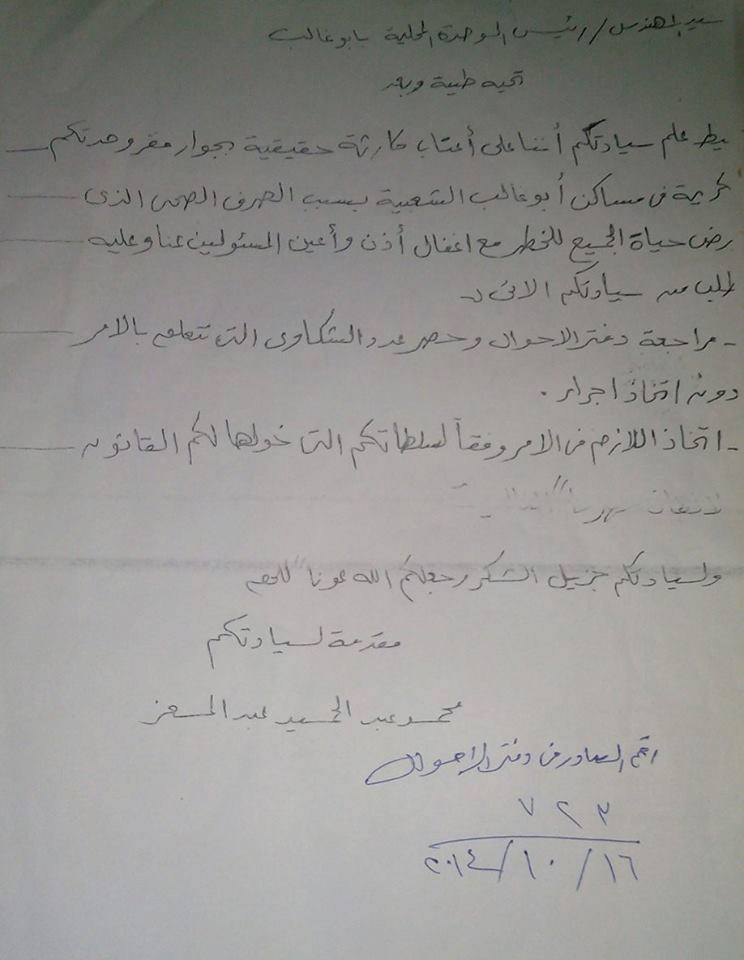 سيد المهندس / رئيس الوحدة المحلية بابو غالب
تحيه طيبة وبعد
يط علم سيادتكم أننا على أعتاب كارثة حقيقية بجوار مقر وحدتكم
كرية فى مساكن أبو غالب الشعبية بسبب الصرف الصحى الذى
رض حياة الجميع للخطر مع اغفال أذن وأعين المسئولين عنا وعليه
طلب من سيادتكم الاتى :-
- مراجعة دفتر الاحوال وحصر عدد الشكاوى التى تتعلق بالامر
دون اتخاذ اجراء .
- اتخاذ اللازم فى الامر وفقاً لسلطاتكم التى خولها لكم القانون
ولسيادتكم جزيل الشكر وجعلكم الله عونا للحق
مقدمة لسيادتكم
محمد عبد الحميد عبد المعز
رقم الصادر فى دفتر الاحوال
٧٢٣
١٦ / ١٠ / ٢٠١٤